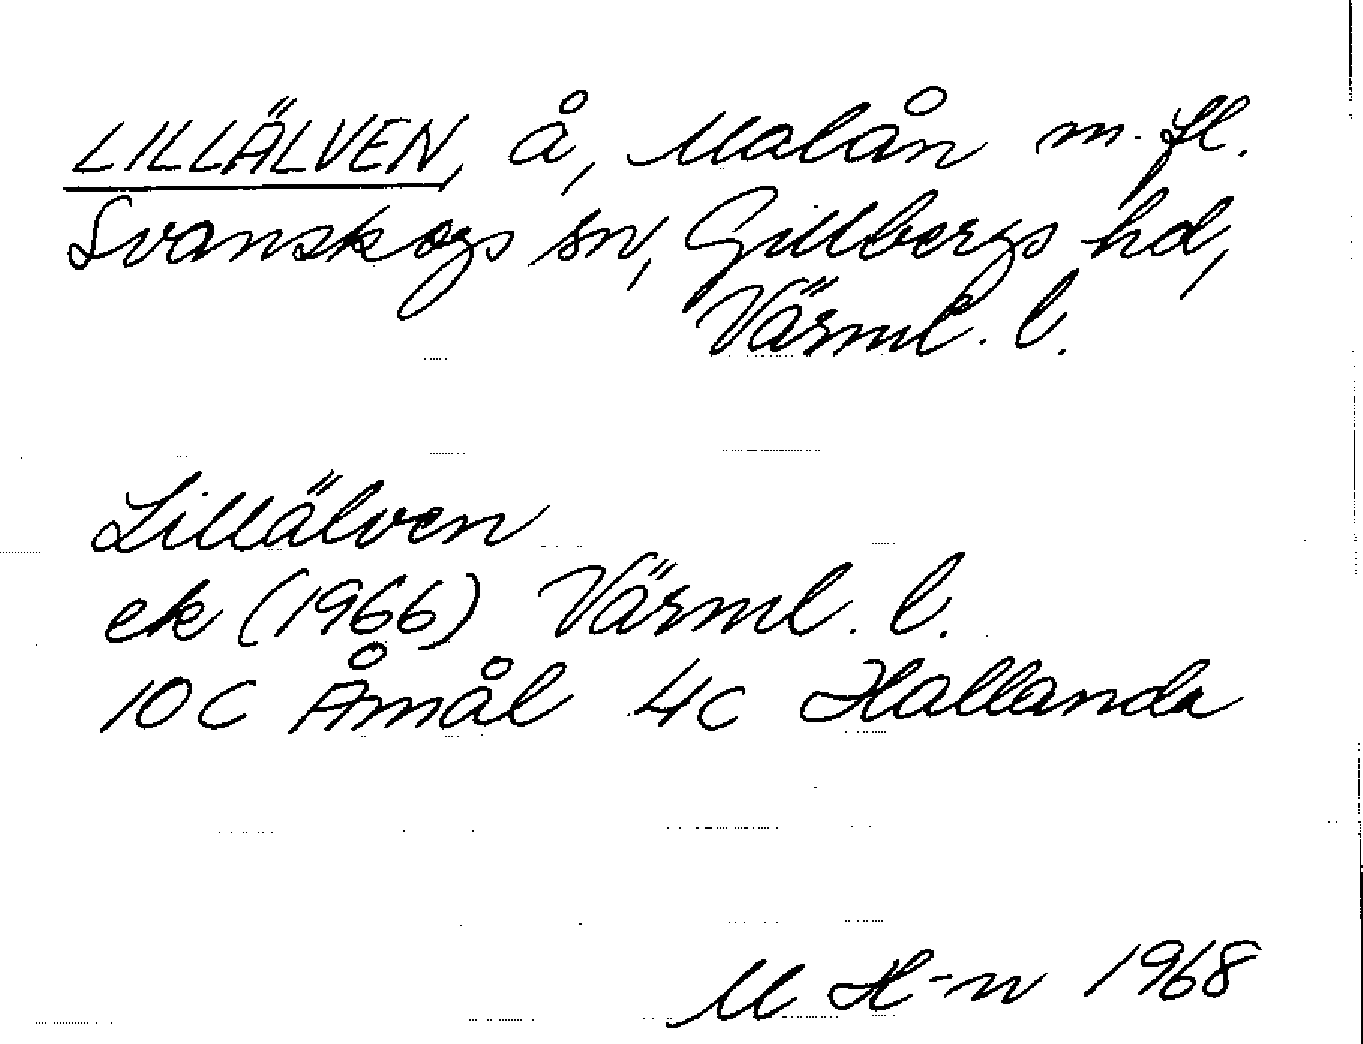 LILLÄLVEN, å, Malån m. fl.
Svanskogs sn, Gillbergs hd,
Värml. l.
Lillälven
ek (1966) Värml. l.
10C Åmål 4c Hallanda
M H-n 1968